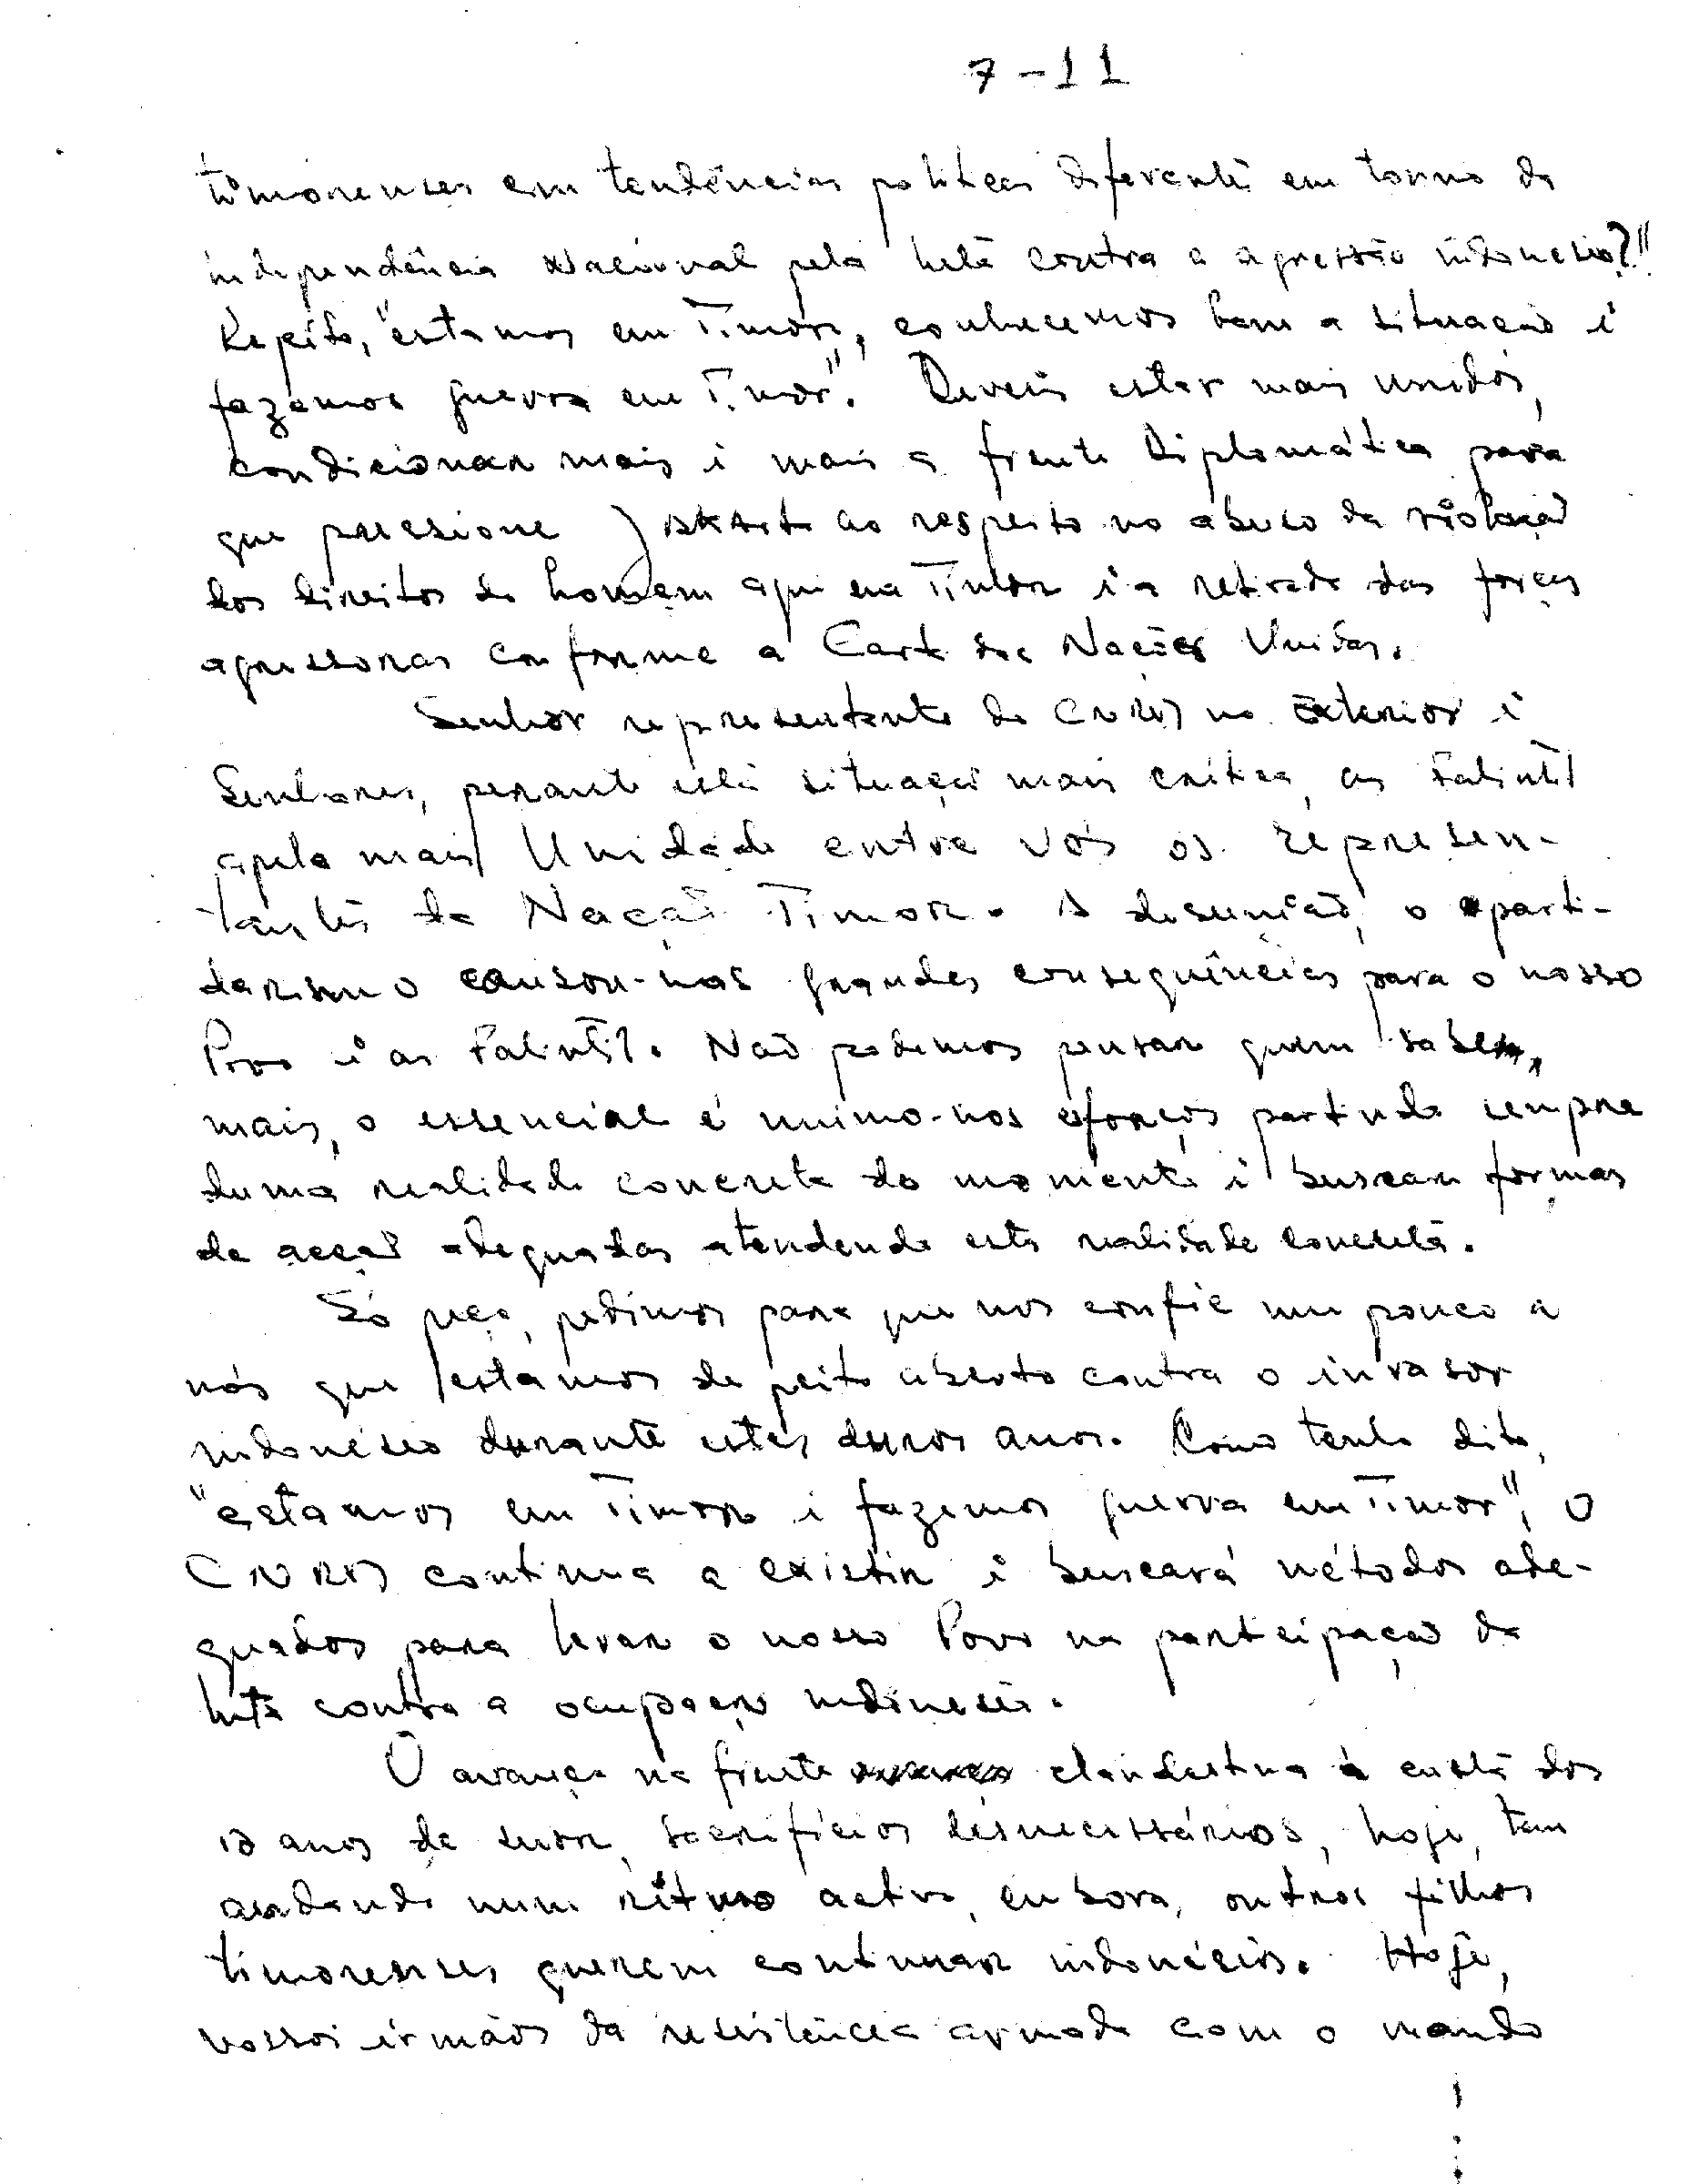 7-11
timorenses em tendências politicas diferentes em torno da
independência Nacional pela luta contra a agressão indonesia?"
Repito, "estamos em Timor, conhecemos bem a situação e
fazemos guerra em Timor". Deveis estar mais unidos,
condicionar mais e mais a frente Diplomática para
que pressione Jakarta ao respeito no abuso da violação
dos direitos do homem aqui em Timor e a retirada das forças
agressoras conforme a Carta das Nações Unidas.
Senhor representante do CNRM no Exterior e
Senhores, perante esta situação mais critica, as Falintil
apela mais Unidade entre vós os represen-
tantes da Nação Timor. A desunião, o parti-
darismo causou-nos grandes consequências para o nosso
Povo e as Falintil. Não podemos pensar quem sabe
mais, o essencial é unimo-nos esforços partindo sempre
duma realidade concreta do momento e buscar formas
de acção adequadas atendendo esta realidade concreta.
Só peço, pedimos para que nos confie um pouco a
nós que estamos de peito aberto contra o invasor
indonésio durante estes duros anos. Como tenho dito,
"estamos em Timor e fazemos guerra em Timor", O
CNRM continua a existir e buscará métodos ade-
quados para levar o nosso Povo na participação da
luta contra a ocupação indonesia.
O avanço na frente clandestina à custa dos
18 anos de suor, sacrifícios desnecessários, hoje, tem
andando num ritmo activo, embora, outros filhos
timorenses querem continuar indonésios. Hoje,
vossos irmãos da resistência armada com o mando